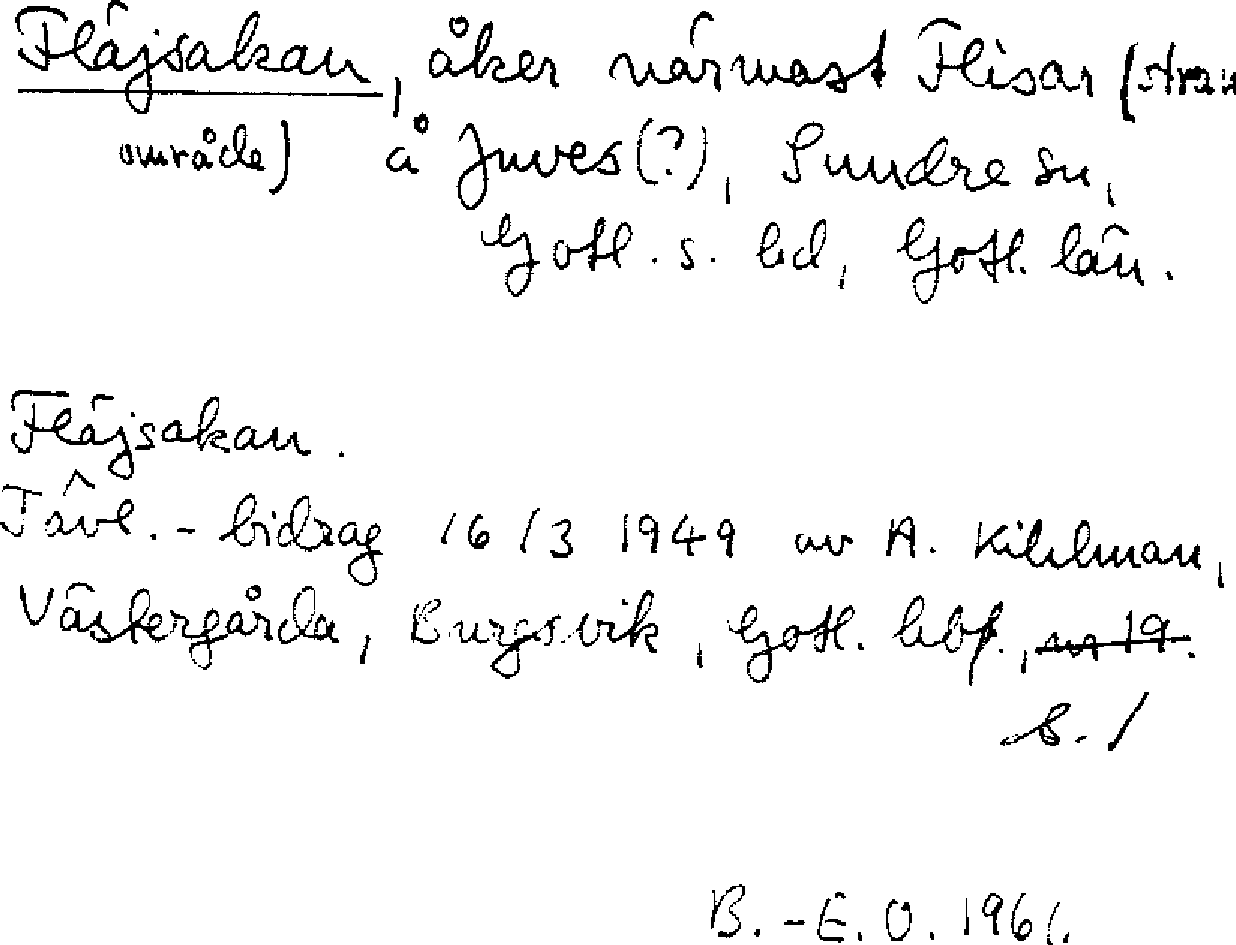 Fläjsakan, åker närmast Flisar (stran
område) å Juves(?), Sundre sn,
Gotl. s. hd, Gotl. län.
Fläjsakan.
Tävl.-bidrag 16/3 1949 av A. Kihlman,
Västergårda, Burgsvik, Gotl. hbf.,
s. 1
B.-E. O. 1961.